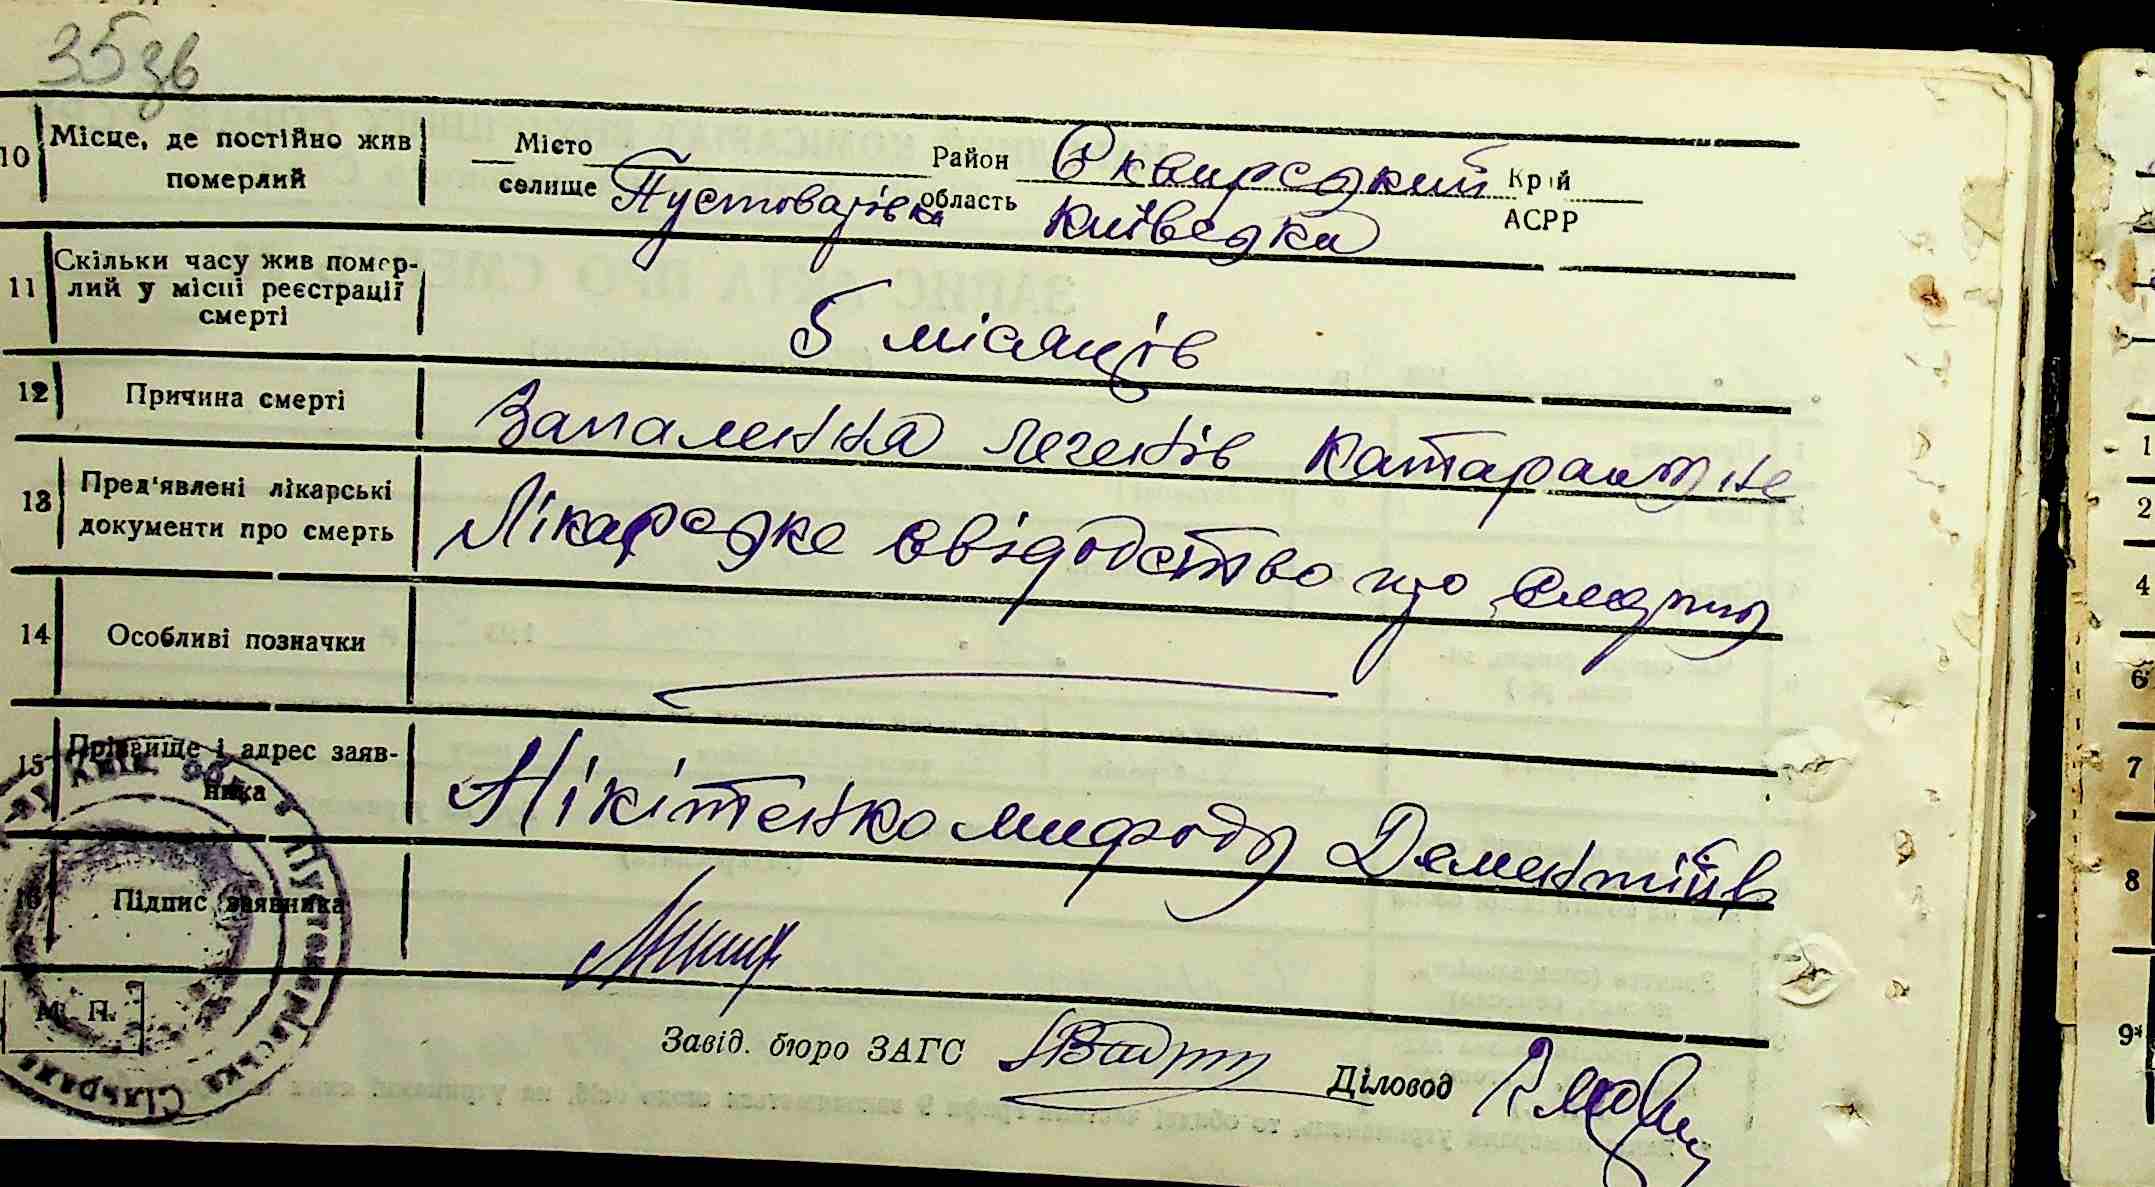 35зв
10 Місце, де постійно жив померлий
Місто
Район Сквирський Край
селище Пустоварівка область Київська АСРР
11 Скільки часу жив помер-
лий у місці реєстрації
смерті
5 місяців
12 Причина смерті
Запалення легенів катаральне
13 Пред'явлені лікарські
документи про смерть
Лікарське свідодство про смерть
14 Особливі позначки
15 Прізвище і адрес заяв-
ника
Нікітенко Мифодь Дементіїв
16 Підпис заявника
М. П.
Пустоварівська Сільрада
Завід. бюро ЗАГС
Діловод
1
2
4
6
7
8
9*